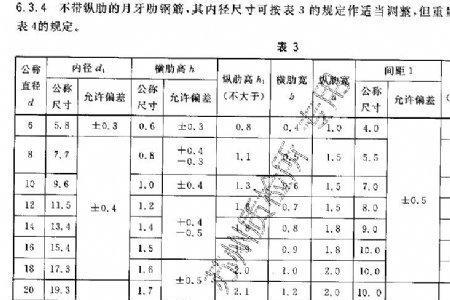 6.3.4 不带纵肋的月牙肋钢筋,其内径尺寸可按表 3 的规定作适当调整,但重
表4的规定。
表 3
公称直径 d 内径 d₁ 横肋高 h 纵肋高 h₁ (不大于) 横肋宽 b 纵肋宽 间距 l
公称尺寸 允许偏差 公称尺寸 允许偏差 公称尺寸 允许偏差
6 5.8 ±0.3 0.6 ±0.3 0.8 0.4 1.0 4.0
8 7.7 0.8 +0.4 -0.3 1.1 1.5 5.5
10 9.6 ±0.4 1.0 ±0.4 1.3 0.6 1.5 7.0 ±0.5
12 11.5 1.2 +0.4 -0.5 0.7 1.5 8.0
14 13.4 1.4 0.8 1.8 9.0
16 15.4 1.5 0.9 1.8 10.0
18 17.3 1.6 ±0.5 1.0 2.0 10.0
20 19.3 1.7 2.1 1.2 2.0 10.0